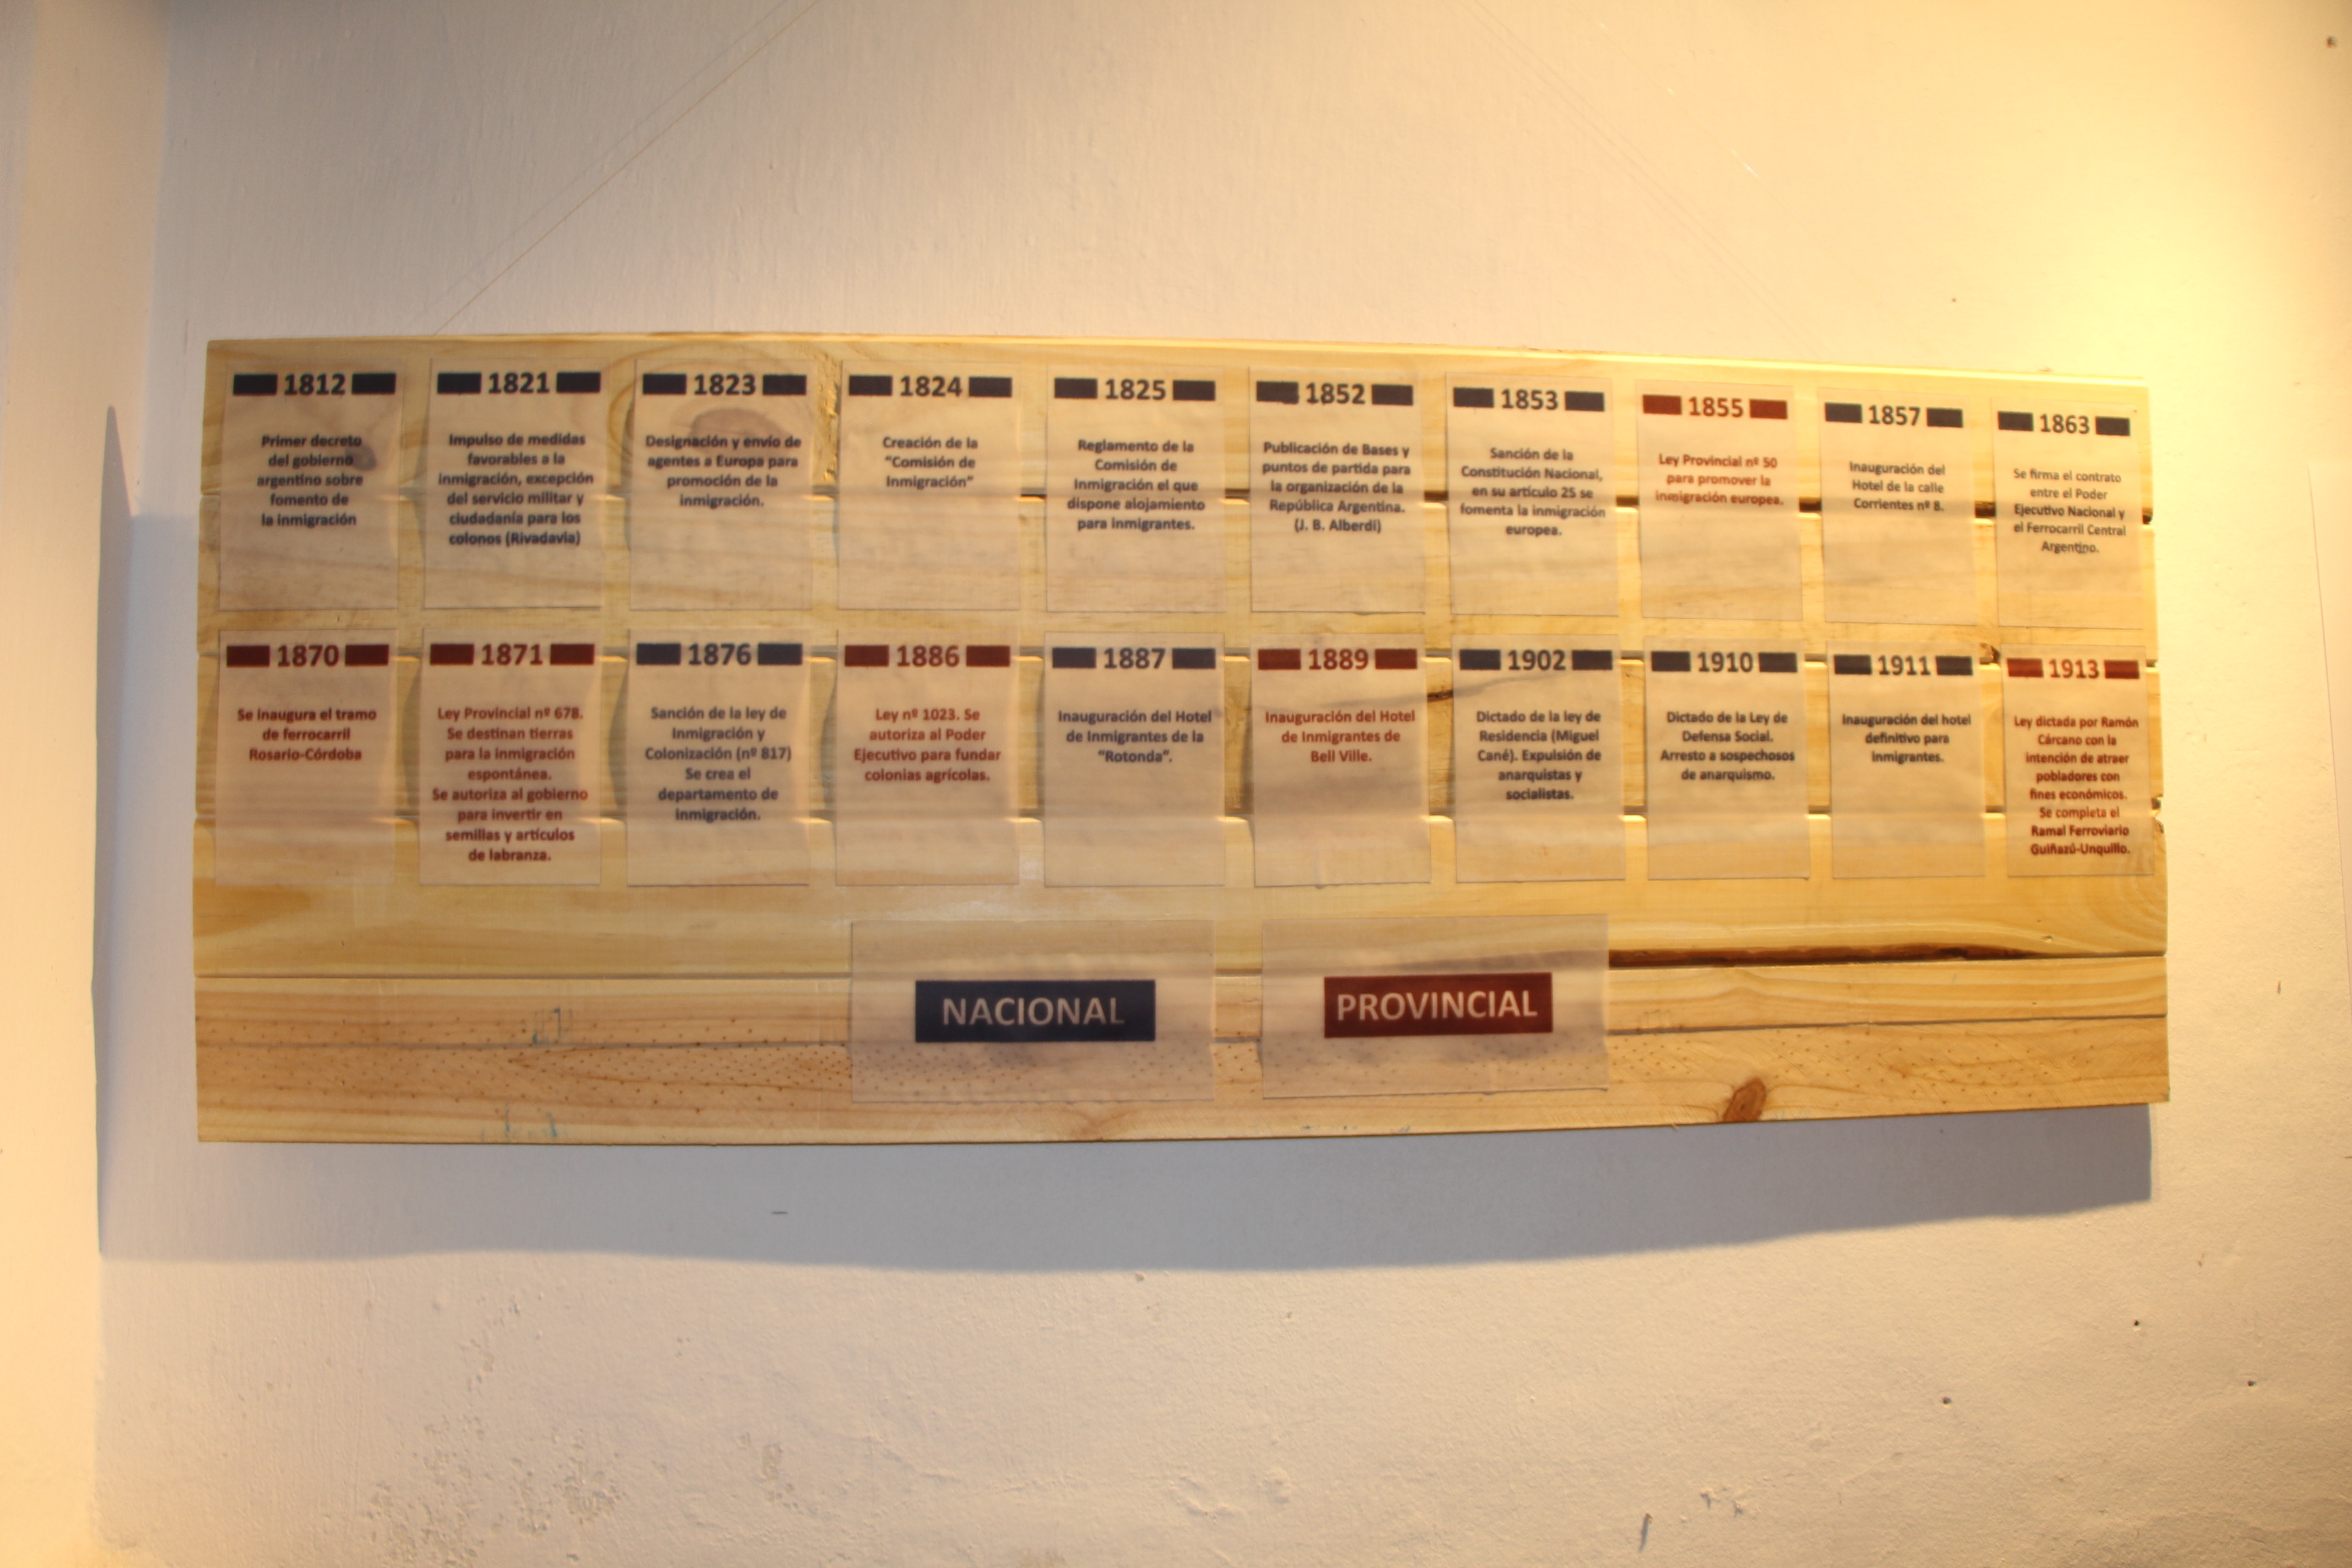 1812
Primer decreto
del gobierno
argentino sobre
fomento de
la inmigración
1821
Impulso de medidas
favorables a la
inmigración, excepción
del servicio militar y
ciudadanía para los
colonos (Rivadavia)
1823
Designación y envío de
agentes a Europa para
promoción de la
inmigración.
1824
Creación de la
"Comisión de
Inmigración"
1825
Reglamento de la
Comisión de
Inmigración el que
dispone alojamiento
para inmigrantes.
1852
Publicación de Bases y
puntos de partida para
la organización de la
República Argentina.
(J. B. Alberdi)
1853
Sanción de la
Constitución Nacional,
en su artículo 25 se
fomenta la inmigración
europea.
1855
Ley Provincial nº 50
para promover la
inmigración europea.
1857
Inauguración del
Hotel de la calle
Corrientes nº 8.
1863
Se firma el contrato
entre el Poder
Ejecutivo Nacional y
el Ferrocarril Central
Argentino.
1870
Se inaugura el tramo
de ferrocarril
Rosario-Córdoba
1871
Ley Provincial nº 678.
Se destinan tierras
para la inmigración
espontánea.
Se autoriza al gobierno
para invertir en
semillas y artículos
de labranza.
1876
Sanción de la ley de
Inmigración y
Colonización (nº 817)
Se crea el
departamento de
inmigración.
1886
Ley nº 1023. Se
autoriza al Poder
Ejecutivo para fundar
colonias agrícolas.
1887
Inauguración del Hotel
de Inmigrantes de la
"Rotonda".
1889
Inauguración del Hotel
de Inmigrantes de
Bell Ville.
1902
Dictado de la ley de
Residencia (Miguel
Cané). Expulsión de
anarquistas y
socialistas.
1910
Dictado de la Ley de
Defensa Social.
Arresto a sospechosos
de anarquismo.
1911
Inauguración del hotel
definitivo para
inmigrantes.
1913
Ley dictada por Ramón
Cárcano con la
intención de atraer
pobladores con
fines económicos.
Se completa el
Ramal Ferroviario
Guiñazú-Unquillo.
NACIONAL
PROVINCIAL